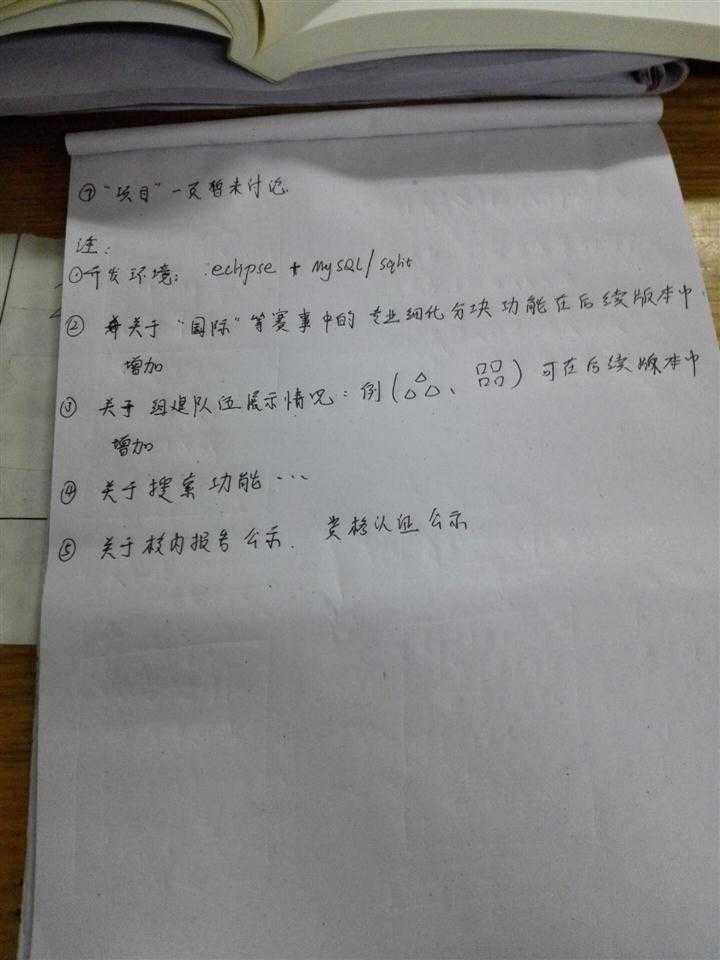 ⑦“项目”一页暂未讨论
注：
①开发环境：eclipse + MySQL/sqlit
② 关于“国际”等赛事中的专业细化分块功能在后续版本中
增加
③ 关于组建队伍展示情况：例(△△△、口口口口)可在后续版本中
增加
④ 关于搜索功能…
⑤ 关于校内报名公示. 资格认证公示